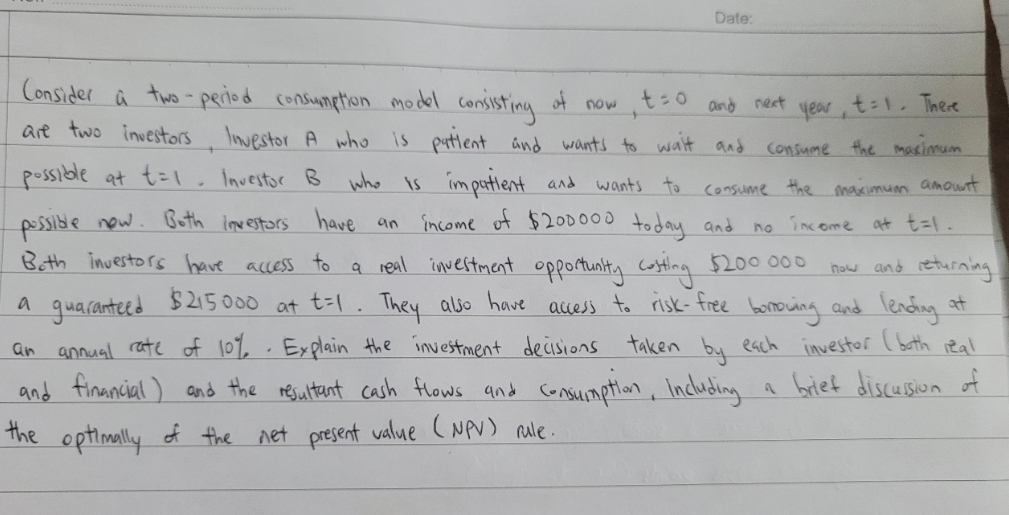 Date:
Consider a two-period consumption model consisting of now, t=0 and next year, t=1. There
are two investors, Investor A who is patient and wants to wait and consume the maximum
possible at t=1. Investor B who is impatient and wants to consume the maximum amount
possible now. Both investors have an income of $200000 today and no income at t=1.
Both investors have access to a real investment opportunity costing $200 000 now and returning
a guaranteed $215000 at t=1. They also have access to risk-free borrowing and lending at
an annual rate of 10%. Explain the investment decisions taken by each investor (both real
and financial) and the resultant cash flows and consumption, Including a brief discussion of
the optimally of the net present value (NPV) rule.